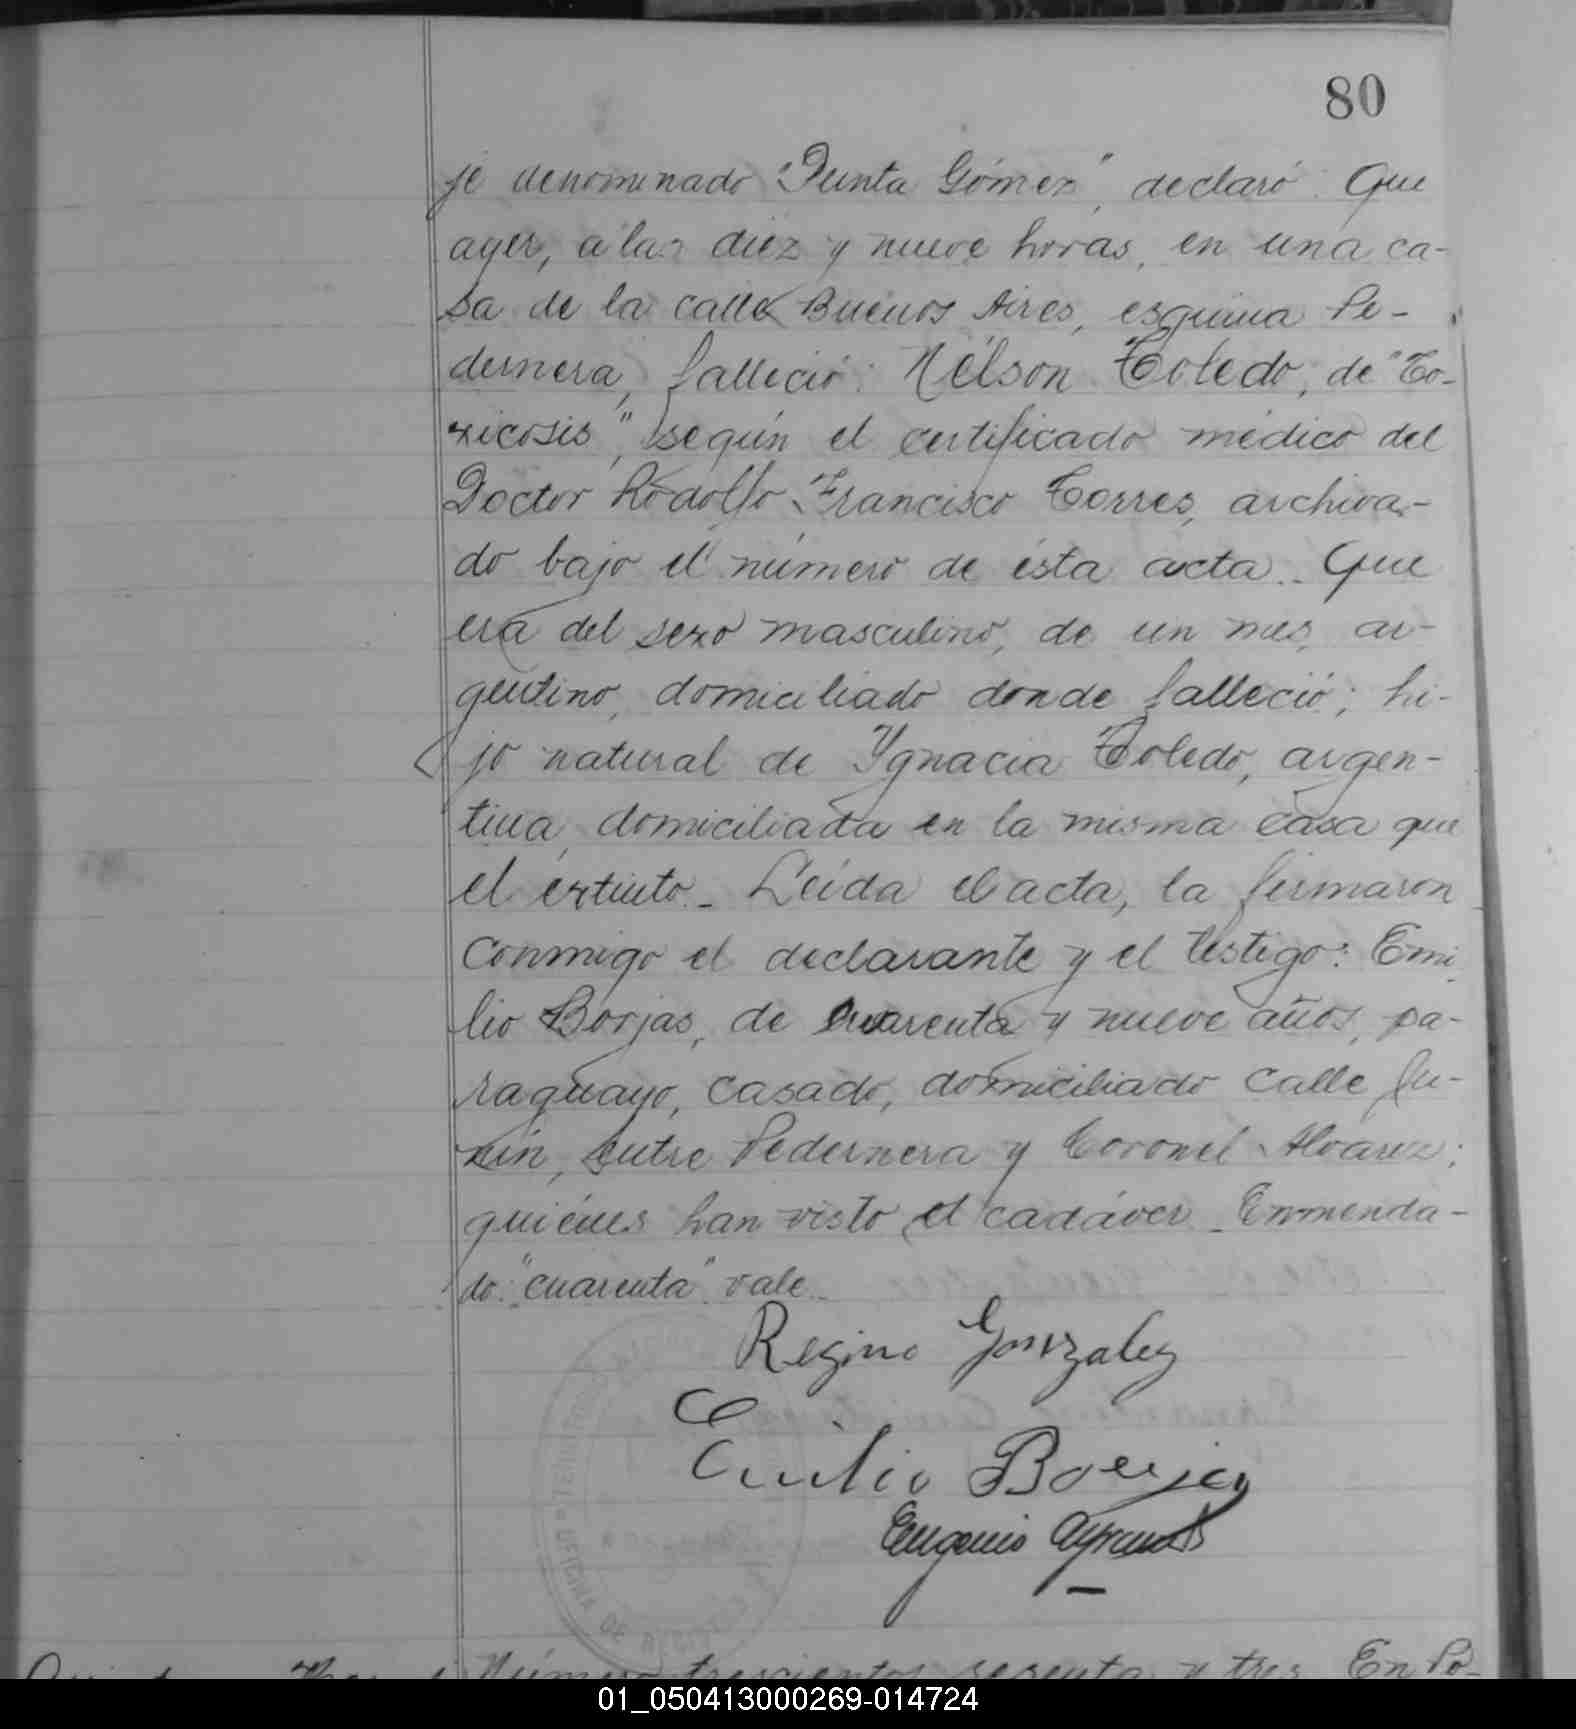 80
je denominado "Punta Gómez", declaró: Que
ayer, a las diez y nueve horas, en una ca-
sa de la calle Buenos Aires, esquina Pe-
dernera, falleció: Nélson Toledo, de "To-
xicosis", según el certificado médico del
Doctor Rodolfo Francisco Torres, archiva-
do bajo el número de ésta acta.. Que
era del sexo masculino, de un mes, ar-
gentino, domiciliado donde falleció; hi-
jo natural de Ygnacia Toledo, argen-
tina, domiciliada en la misma casa que
el extinto.- Leída el acta, la firmaron
conmigo el declarante y el testigo: Emi
lio Borjas, de cuarenta y nueve años, pa-
raguayo, casado, domiciliado calle Ju-
nín, entre Pedernera y Coronel Alvarez;
quiénes han visto el cadáver.- Enmenda-
do: "cuarenta" vale.
Regino Gonzalez
Emilio Borjas
Eugenio
OFICINA DE
Número trescientos sesenta y tres. En Po-
01_050413000269-014724